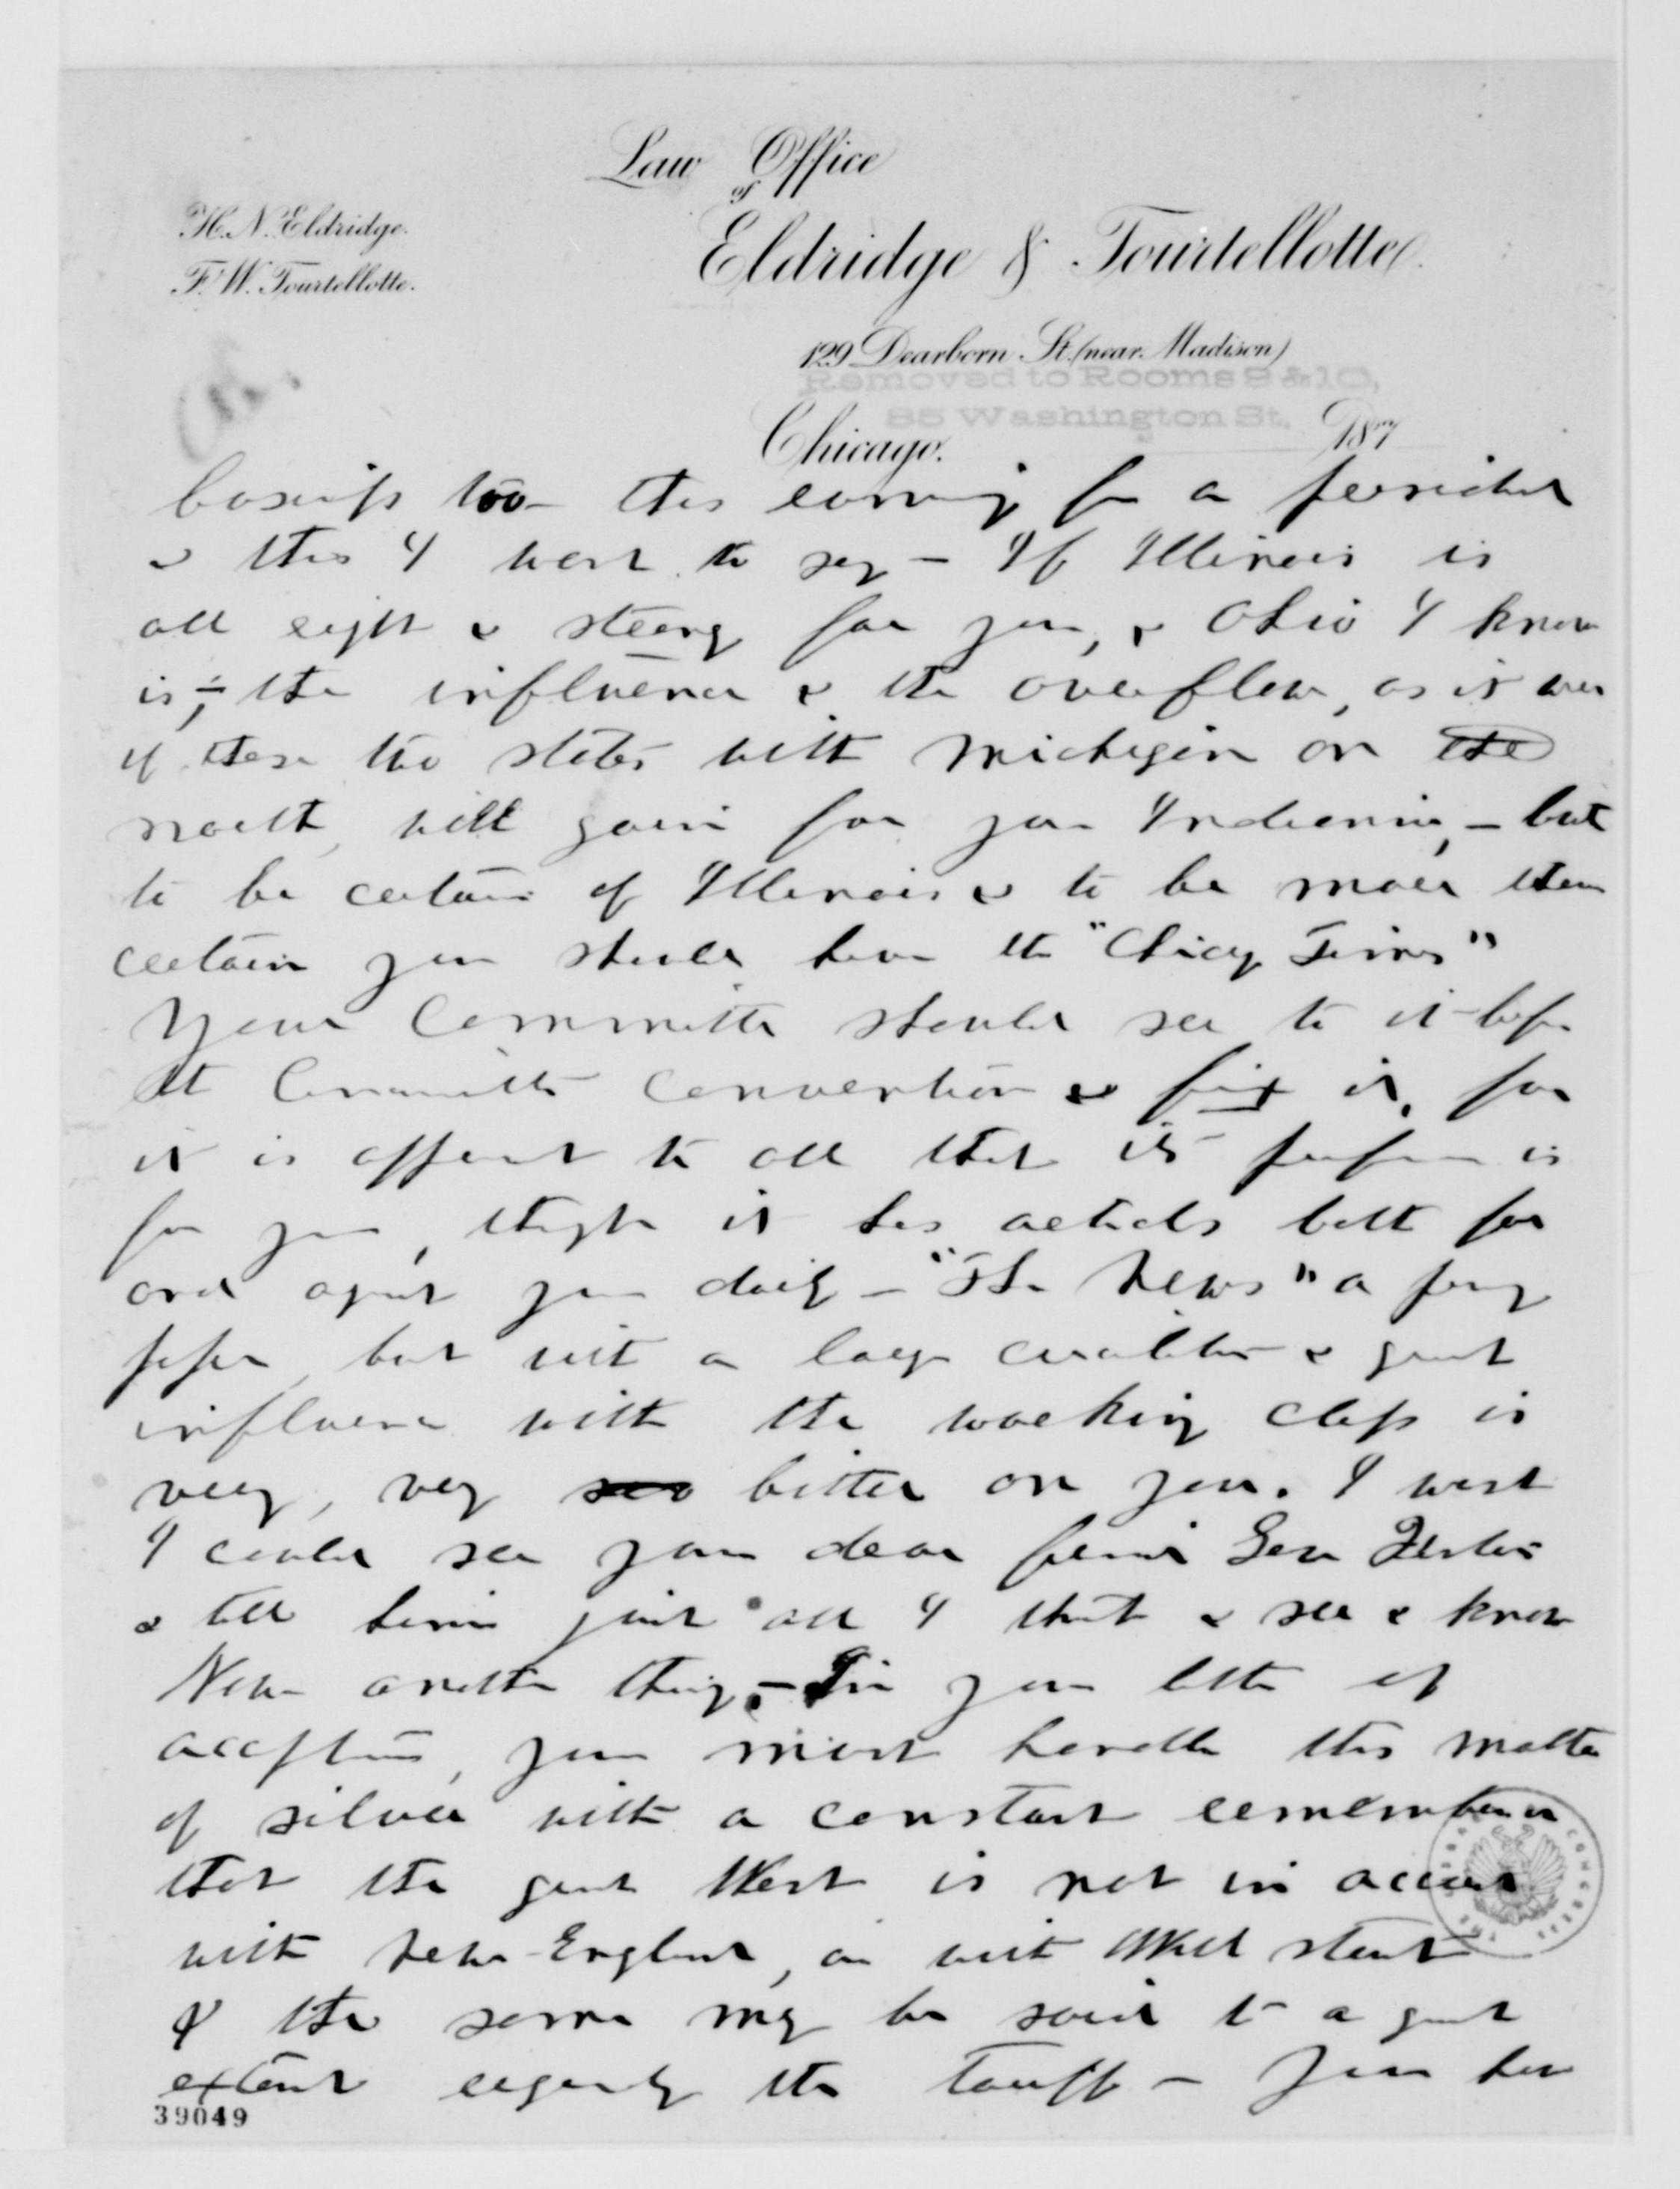 Law Office
of
H. N. Eldridge.
Eldridge & Tourtellotte.
F. W. Tourtellotte.
129 Dearborn St. (near Madison)
Removed to Rooms 9 & 10,
85 Washington St.
Chicago. 187
too - this evening for a
& this I want to say - If Illinois is
all right & strong for you, & Ohio I know
is, - the influence & the overflow, as it were
of these two states with Michigan on the
north, will gain for you Indiana, - but
to be certain of Illinois & to be more than
certain you should have the "Chicag Times"
Your Committee should see to it - before
the Committee Convention & fix it, for
it is apparent to all that its purpose is
for you, though it has articles both for
and against you daily - "The News" a
paper, but with a large circulation & great
influence with the working class is
very, very bitter on you. I wish
I could see your dear friend Gen
& tell him just all I think & see & know
Now another thing, - In your letter of
acceptance, you must handle this matter
of silver with a constant remembrance
that the great West is not in accord
with New-England, or with Wall street
& the same may be said to a great
extent regarding the Tariff - You have
39049